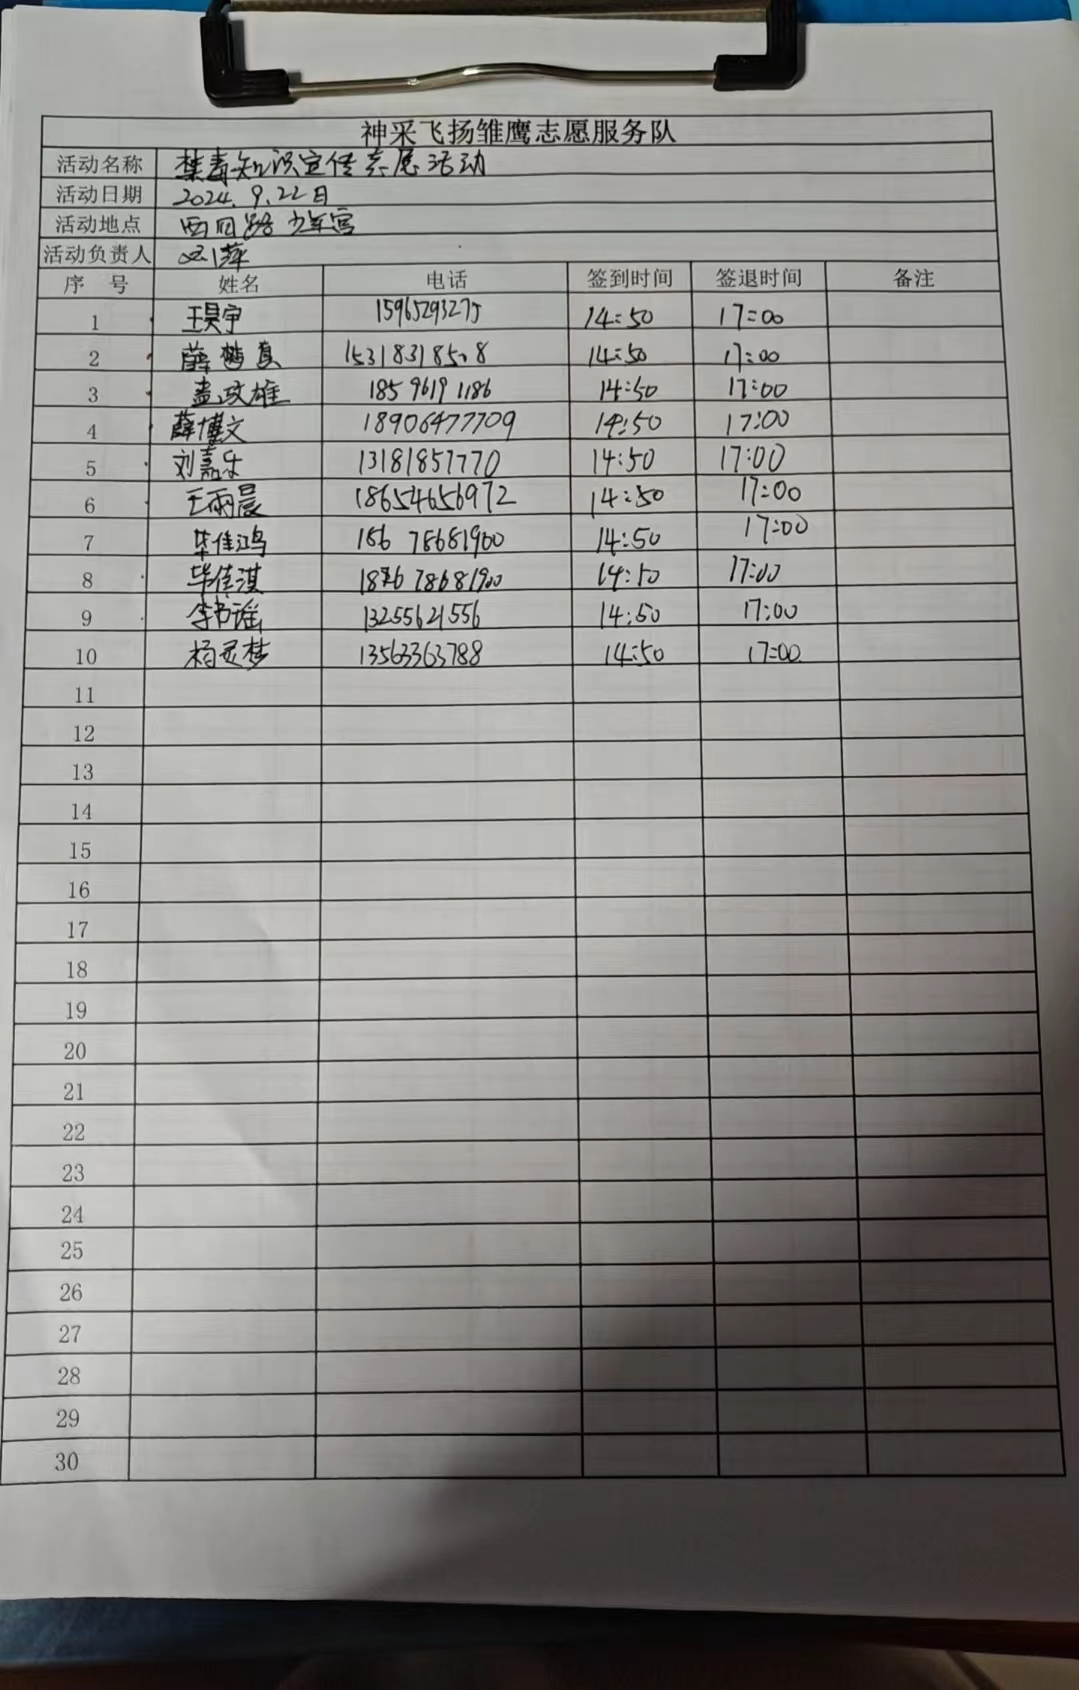 神采飞扬雏鹰志愿服务队
活动名称 禁毒知识宣传志愿活动
活动日期 2024.9.22日
活动地点 西四路少年宫
活动负责人
序 号 姓名 电话 签到时间 签退时间 备注
1 王昊宇 15965293275 14:50 17:00
2 薛 15318318508 14:50 17:00
3 孟政雄 185 9619 1186 14:50 17:00
4 薛博文 18906477709 14:50 17:00
5 刘嘉乐 13181857770 14:50 17:00
6 王雨晨 18654656972 14:50 17:00
7 毕佳鸿 186 78681900 14:50 17:00
8 毕佳淇 186 78681900 14:50 17:00
9 李书谣 13255621556 14:50 17:00
10 杨灵梦 13563363788 14:50 17:00
11
12
13
14
15
16
17
18
19
20
21
22
23
24
25
26
27
28
29
30